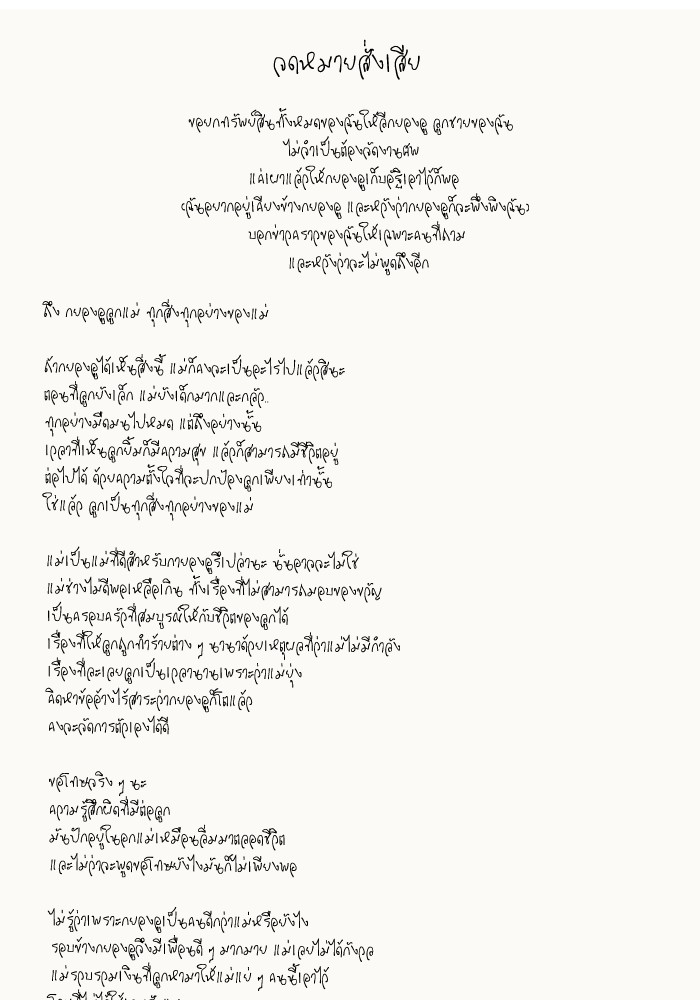 จดหมายสั่งเสีย
ขอยกทรัพย์สินทั้งหมดของฉันให้อีกยองอู ลูกชายของฉัน
ไม่จำเป็นต้องจัดงานศพ
แค่เผาแล้วให้กยองอูเก็บอัฐิเอาไว้ก็พอ
(ฉันอยากอยู่เคียงข้างกยองอู และหวังว่ากยองอูก็จะพึ่งพิงฉัน)
บอกข่าวคราวของฉันให้เฉพาะคนที่ถาม
และหวังว่าจะไม่พูดถึงอีก
ถึง กยองอูลูกแม่ ทุกสิ่งทุกอย่างของแม่
ถ้ากยองอูได้เห็นสิ่งนี้ แม่ก็คงจะเป็นอะไรไปแล้วสินะ
ตอนที่ลูกยังเล็ก แม่ยังเด็กมากและกลัว..
ทุกอย่างมืดมนไปหมด แต่ถึงอย่างนั้น
เวลาที่เห็นลูกยิ้มก็มีความสุข แล้วก็สามารถมีชีวิตอยู่
ต่อไปได้ ด้วยความตั้งใจที่จะปกป้องลูกเพียงเท่านั้น
ใช่แล้ว ลูกเป็นทุกสิ่งทุกอย่างของแม่
แม่เป็นแม่ที่ดีสำหรับกายองอูรึเปล่านะ นั่นอาจจะไม่ใช่
แม่ช่างไม่ดีพอเหลือเกิน ทั้งเรื่องที่ไม่สามารถมอบของขวัญ
เป็นครอบครัวที่สมบูรณ์ให้กับชีวิตของลูกได้
เรื่องที่ให้ลูกถูกทำร้ายต่าง ๆ นานาด้วยเหตุผลที่ว่าแม่ไม่มีกำลัง
เรื่องที่ละเลยลูกเป็นเวลานานเพราะว่าแม่ยุ่ง
คิดหาข้ออ้างไร้สาระว่ากยองอูก็โตแล้ว
คงจะจัดการตัวเองได้ดี
ขอโทษจริง ๆ นะ
ความรู้สึกผิดที่มีต่อลูก
มันปักอยู่ในอกแม่เหมือนลิ่มมาตลอดชีวิต
และไม่ว่าจะพูดขอโทษยังไงมันก็ไม่เพียงพอ
ไม่รู้ว่าเพราะกยองอูเป็นคนดีกว่าแม่หรือยังไง
รอบข้างกยองอูจึงมีเพื่อนดี ๆ มากมาย แม่เลยไม่ได้กังวล
แม่รวบรวมเงินที่ลูกหามาให้แม่แย่ ๆ คนนี้เอาไว้